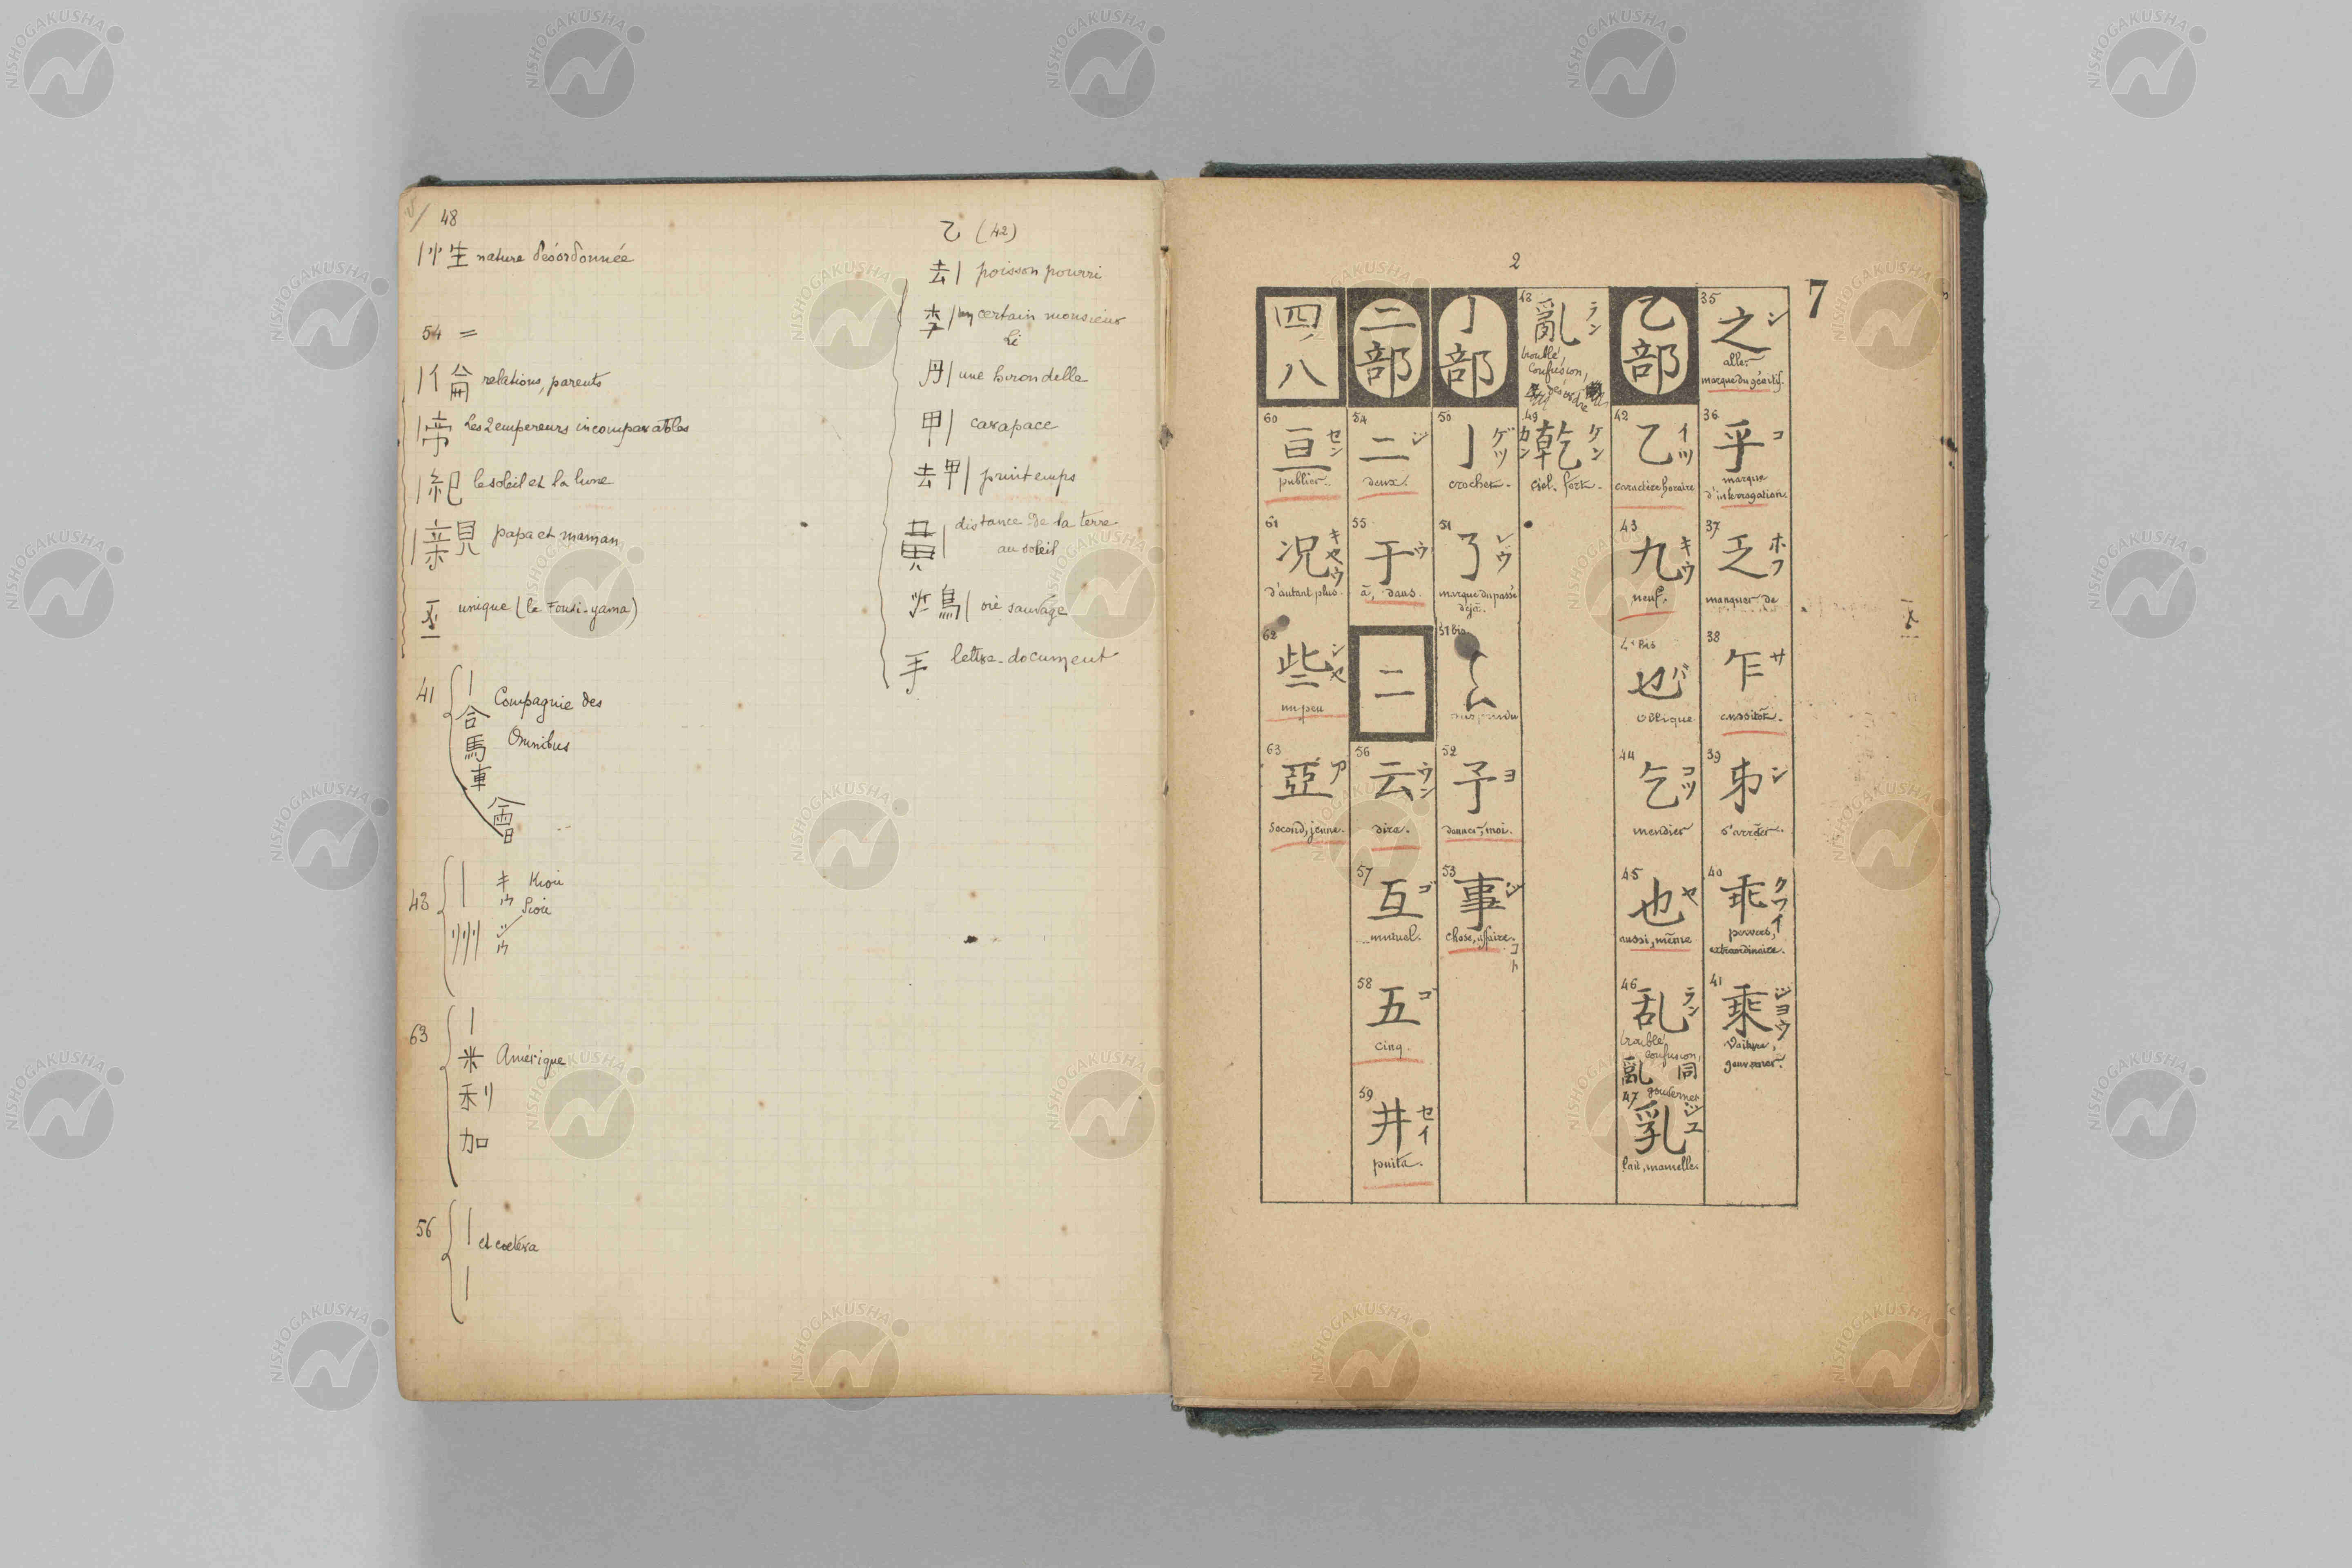 48
忄生 nature désordonnée
54 =
|倫 relations, parents
|帝 les 2 empereurs incomparables
|紀 le soleil et la lune
|親 papa et maman
unique (le Fousi-yama)
41
|
合
馬
車
會
Compagnie des
Omnibus
43
|
州
キウ Kiou
シウ Siou
63
|
米
利
加
Amérique
56
|
|
et coetéra
乙 (42)
去| poisson pourri
李| un certain monsieur
Li
| une hirondelle
甲| carapace
去甲| printemps
黄| distance de la terre
au soleil
鳥| oie sauvage
手 lettre-document
2
7
35
之 シ
aller
marque du génitif.
36
乎 コ
marque
d'interrogation.
37
乏 ホフ
manquer de
38
乍 サ
aussitôt.
39
シ
s'arrêter.
40
乖 クワイ
pervers,
extraordinaire.
41
乘 ジヨウ
Voiture,
gouverner.
乙部
42
乙 イツ
caractère horaire
43
九 キウ
neuf.
Bis
oblique
44
乞 コツ
mendier
45
也 ヤ
aussi, même
46
乱 ラン
trouble,
confusion,
亂 同
gouverner
47
乳 ジユ
lait, mamelle.
48
亂 ラン
trouble,
confusion,
désordre
49
乾 カン ケン
ciel. fort.
亅部
50
亅 ゲツ
crochet.
51
了 レウ
marque du passé
déjà.
51 bis
52
予 ヨ
donner, moi.
53
事 ジ
chose, affaire.
コト
二部
54
二 ジ
deux.
55
于 ウ
à, dans.
二
56
云 ウン
dire.
57
互 ゴ
mutuel.
58
五 ゴ
cinq.
59
井 セイ
puits.
四ノ八
60
亘 セン
publier.
61
况 キヤウ
d'autant plus.
62
些 シヤ
un peu
63
亞 ア
second, jeune.
NISHOGAKUSHA